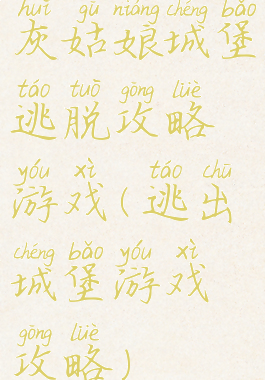 huī gū niáng chéng bǎo
灰姑娘城堡
táo tuō gōng lüè
逃脱攻略
yóu xì táo chū
游戏(逃出
chéng bǎo yóu xì
城堡游戏
gōng lüè
攻略)